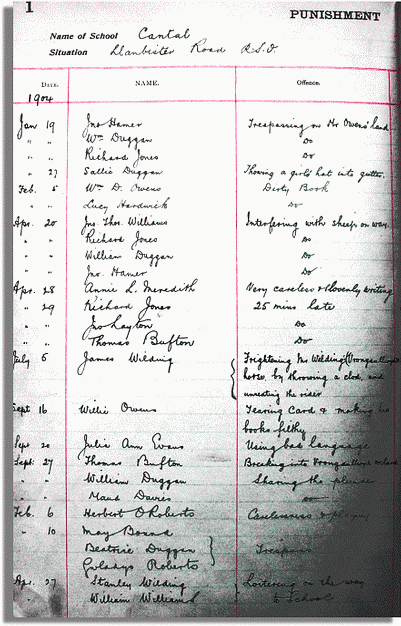 1
PUNISHMENT
Name of School Cantal
Situation Llanbister Road R.S.O
DATE. NAME. Offence.
1904
Jan 19 Jno Hamer Trespassing on Mr Owens' land
" " Wm Duggan Do
" " Richard Jones Do
" 27 Sallie Duggan Throwing a girl's hat into gutter.
Feb. 5 Wm D. Owens Dirty Book
" " Lucy Hardwick Do
Apr. 20 Jno Thos. Williams Interfering with sheep on way.
" " Richard Jones Do
" " William Duggan Do
" " Jno. Hamer Do
Apr. 28 Annie L. Meredith Very careless & slovenly writing
" 29 Richard Jones 25 mins late
" " Jno Layton Do
" " Thomas Bufton Do
July 5 James Wilding Frightening Mr Welding
horse, by throwing a clod, and
unseating the rider
Sept 16 Willie Owens Tearing Card & making his
books filthy
Sept 20 Julia Ann Evans Using bad language
Sept. 27 Thomas Bufton Breaking into
" " William Duggan Sharing the plunder
" " Maud Davies Do
Feb. 6 Herbert O Roberts Carelessness & playing
" 10 May Bound
Beatrice Duggan Trespass
Gwladys Roberts
Apr. 27 Stanley Wilding Loitering on the way
" " William Williams to School